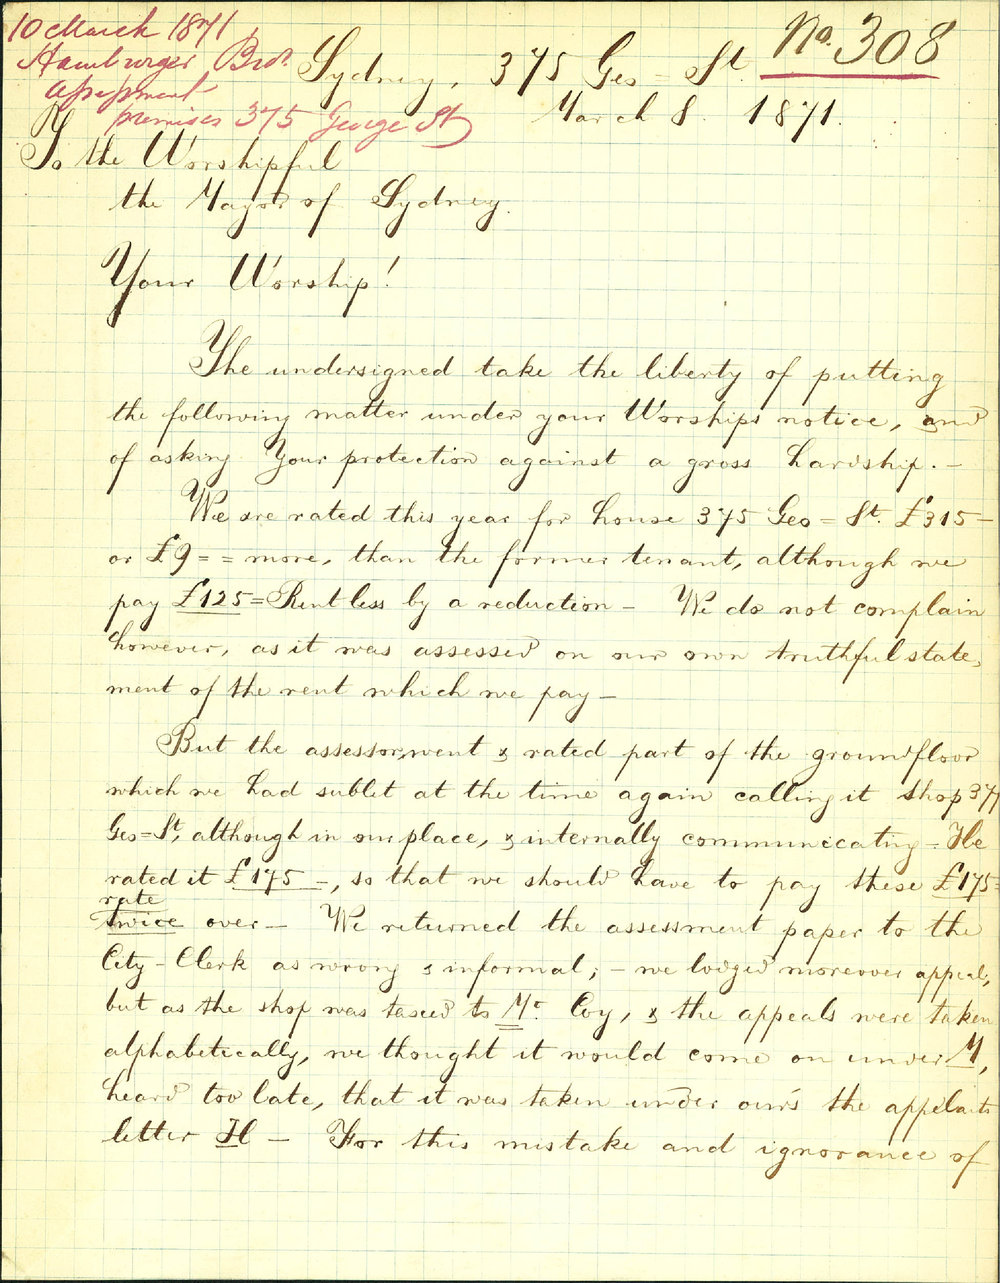 10 March 1871
Hamburger Bros.
assessment
premises 375 George St
No. 308
Sydney, 375 Geo = St.
March 8. 1871.
To the Worshipful
the Mayor of Sydney.
Your Worship!
The undersigned take the liberty of putting
the following matter under your Worships notice, and
of asking Your protection against a gross hardship. —
We are rated this year for house 375 Geo = St. £315 —
or £9 = = more, than the former tenant, although we
pay £125 = Rent less by a reduction — We do not complain
however, as it was assessed on our own truthful state-
ment of the rent which we pay —
But the assessor, went & rated part of the groundfloor
which we had sublet at the time again calling it shop 377
Geo = St, although in our place, & internally communicating — He
rated it £175 —, so that we should have to pay these £175 =
rate
twice over — We returned the assessment paper to the
City - Clerk as wrong & informal; — we lodged moreover appeal,
but as the shop was taxed to Mc. Coy, & the appeals were taken
alphabetically, we thought it would come on under M,
heard too late, that it was taken under our's the appelants
letter H — For this mistake and ignorance of